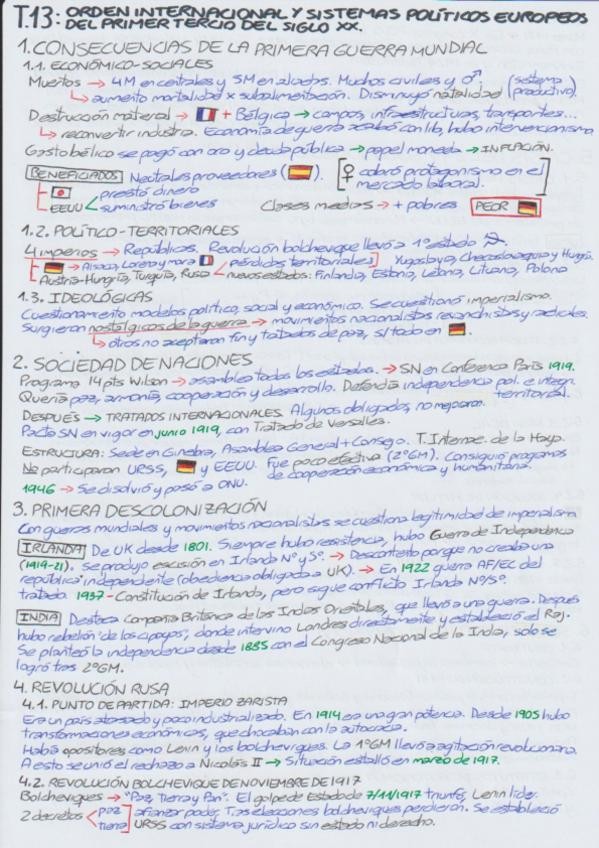 T.13: ORDEN INTERNACIONAL Y SISTEMAS POLÍTICOS EUROPEOS
DEL PRIMER TERCIO DEL SIGLO XX.
1. CONSECUENCIAS DE LA PRIMERA GUERRA MUNDIAL
1.1. ECONÓMICO-SOCIALES
Muertos → 4M en centrales y 5M en aliados. Muchos civiles y ♂ (sistema productivo).
↳ aumento mortalidad x subalimentación. Disminuyó natalidad
Destrucción material → + Bélgica → campos, infraestructuras, transportes...
↳ reconvertir industria. Economía de guerra acabó con lib, hubo intervencionismo
Gasto bélico se pagó con oro y deuda pública → papel moneda → INFLACIÓN.
BENEFICIADOS Neutrales proveedores ( ). [♀ cobró protagonismo en el mercado laboral.]
prestó dinero
EEUU suministró bienes Clases medias → + pobres PEOR
1.2. POLÍTICO-TERRITORIALES
4 imperios → Repúblicas. Revolución bolchevique llevó a 1º estado
→ Alsacia, Lorena y mora pérdidas territoriales] Yugoslavia, Checoslovaquia y Hungría.
Austria-Hungría, Turquía, Rusa nuevos estados: Finlandia, Estonia, Letonia, Lituania, Polonia
1.3. IDEOLÓGICAS
Cuestionamiento modelos político, social y económico. Se cuestionó imperialismo.
Surgieron nostálgicos de la guerra → movimientos nacionalistas revanchistas y radicales.
↳ otros no aceptaron fin y tratados de paz, s/todo en
2. SOCIEDAD DE NACIONES
Programa 14 pts Wilson → asamblea todos los estados. → SN en Conferencia París 1919.
Quería paz, armonía, cooperación y desarrollo. Defendía independencia pol. e integr. territorial.
DESPUÉS → TRATADOS INTERNACIONALES. Algunos obligados, no mejoraron.
Pacto SN en vigor en junio 1919, con Tratado de Versalles.
ESTRUCTURA: Sede en Ginebra, Asamblea General + Consejo. T. Internac. de la Haya.
No participaron URSS, y EEUU. Fue poco efectiva (2ºGM). Consiguió programas
de cooperación económica y humanitaria.
1946 → Se disolvió y pasó a ONU.
3. PRIMERA DESCOLONIZACIÓN
Con guerras mundiales y movimientos nacionalistas se cuestiona legitimidad de imperialismo
IRLANDA De UK desde 1801. Siempre hubo resistencia, hubo Guerra de Independencia
(1919-21). Se produjo escisión en Irlanda Nº y Sº. → Descontento porque no creaba una
república independiente (obediencia obligada a UK). → En 1922 guerra AF/EC del
tratado. 1937 - Constitución de Irlanda, pero sigue conflicto Irlanda Nº/Sº.
INDIA Destaca Compañía Británica de las Indias Orientales, que llevó a una guerra. Después
hubo rebelión de los cipayos, donde intervino Londres directamente y estableció el Raj.
Se planteó la independencia desde 1885 con el Congreso Nacional de la India, solo se
logró tras 2ºGM.
4. REVOLUCIÓN RUSA
4.1. PUNTO DE PARTIDA: IMPERIO ZARISTA
Era un país atrasado y poco industrializado. En 1914 era una gran potencia. Desde 1905 hubo
transformaciones económicas, que chocaban con la autocracia.
Había opositores como Lenin y los bolcheviques. La 1ºGM llevó a agitación revolucionaria.
A esto se unió el rechazo a Nicolás II → Situación estalló en marzo de 1917.
4.2. REVOLUCIÓN BOLCHEVIQUE DE NOVIEMBRE DE 1917
Bolcheviques → "Paz, Tierra y Pan". El golpe de Estado de 7/11/1917 triunfó, Lenin líder.
2 decretos paz tierra] afianzar poder, Tras elecciones bolcheviques perdieron. Se estableció
URSS con sistema jurídico sin estado ni derecho.